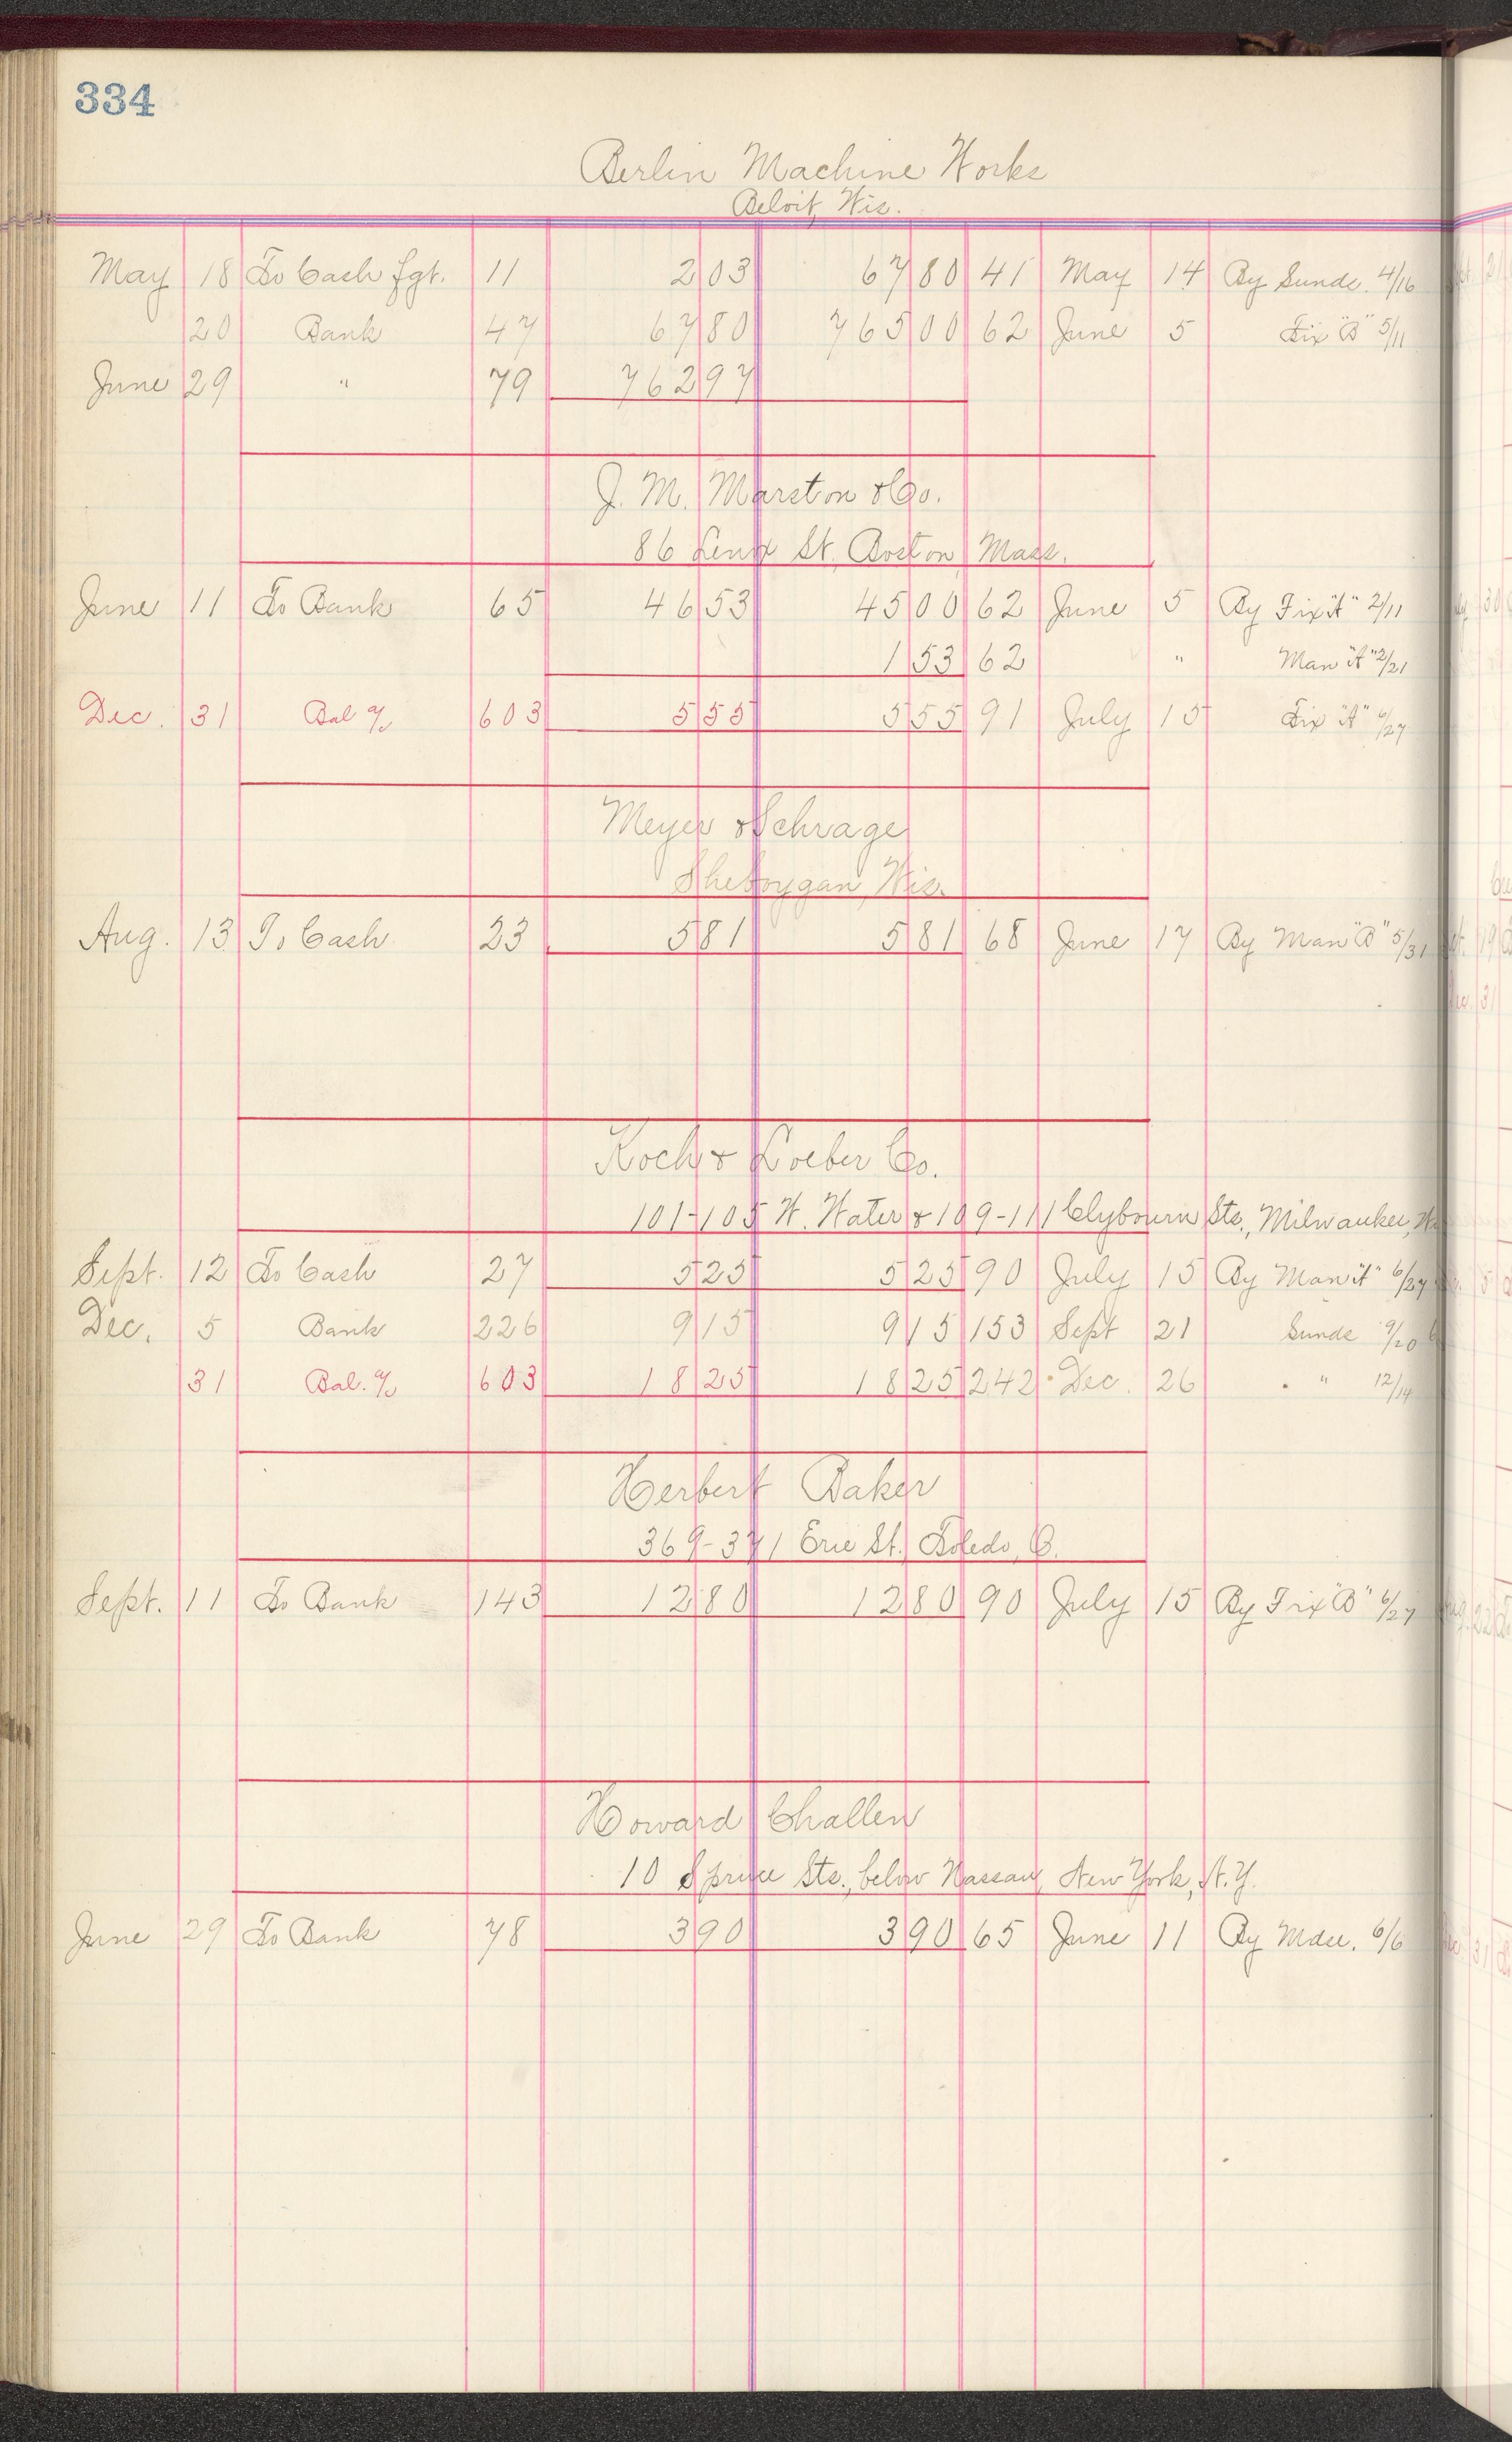 334
Berlin Machine Works
Beloit, Wis.
May 18 To Cash fgt. 11 2 03 67 80 41 May 14 By Sunds. 4/16
20 Bank 47 67 80 765 00 62 June 5 Fix "B" 5/11
June 29 " 79 762 97
J. M. Marston & Co.
86 Lenox St. Boston, Mass.
June 11 To Bank 65 46 53 45 00 62 June 5 By Fix "A" 2/11
1 53 62 " Man "A" 2/21
Dec. 31 Bal c/o 603 5 55 5 55 91 July 15 Fix "A" 6/27
Meyer & Schrage
Sheboygan, Wis.
Aug. 13 To Cash 23 5 81 5 81 68 June 17 By Man "B" 5/31
Koch & Loeber Co.
101-105 W. Water & 109-111 Clybourn Sts., Milwaukee,
Sept. 12 To Cash 27 5 25 5 25 90 July 15 By Man "A" 6/27
Dec. 5 Bank 226 9 15 9 15 153 Sept 21 Sunds 9/20
31 Bal. c/o 603 18 25 18 25 242 Dec. 26 " 12/14
Herbert Baker
369-371 Erie St. Toledo, O.
Sept. 11 To Bank 143 12 80 12 80 90 July 15 By Fix "B" 6/27
Howard Challen
10 Spruce Sts., below Nassau, New York, N.Y.
June 29 To Bank 78 3 90 3 90 65 June 11 By Mdse. 6/6